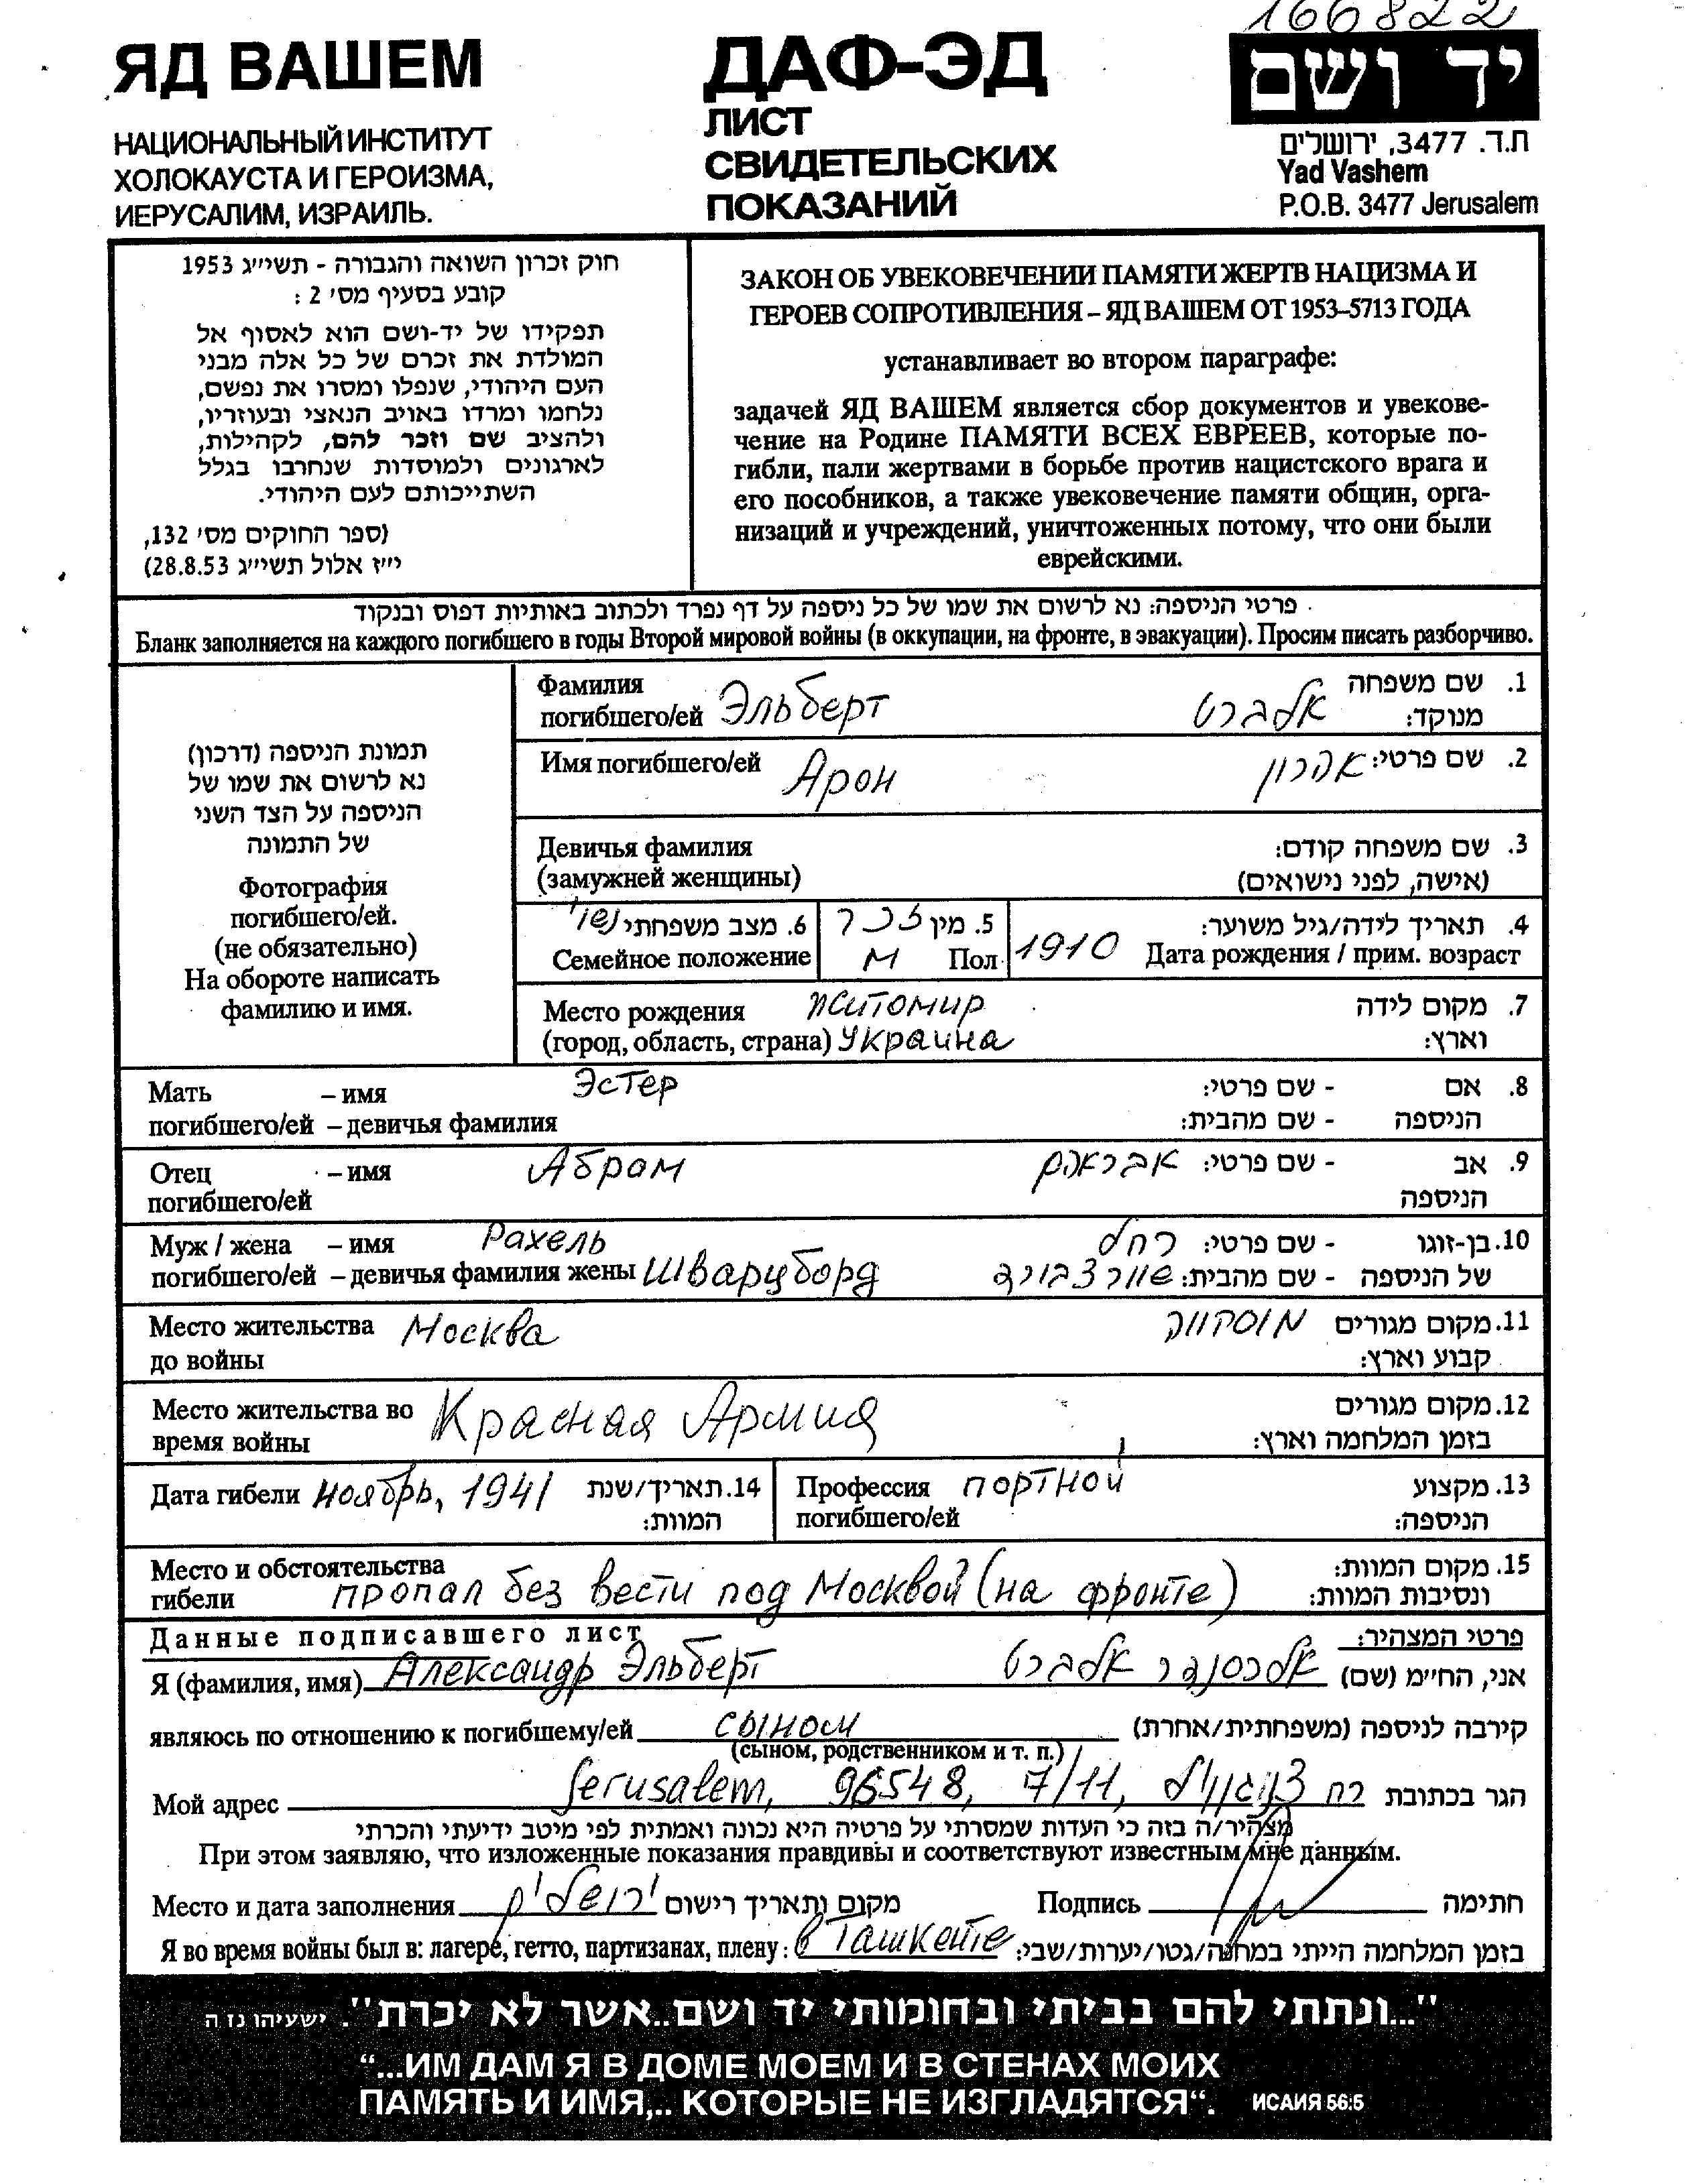 166822
ЯД ВАШЕМ
НАЦИОНАЛЬНЫЙ ИНСТИТУТ
ХОЛОКАУСТА И ГЕРОИЗМА,
ИЕРУСАЛИМ, ИЗРАИЛЬ.
ДАФ-ЭД
ЛИСТ
СВИДЕТЕЛЬСКИХ
ПОКАЗАНИЙ
יד ושם
ת.ד. 3477, ירושלים
Yad Vashem
P.O.B. 3477 Jerusalem
חוק זכרון השואה והגבורה - תשי״ג 1953
קובע בסעיף מס׳ 2 :
תפקידו של יד-ושם הוא לאסוף אל
המולדת את זכרם של כל אלה מבני
העם היהודי, שנפלו ומסרו את נפשם,
נלחמו ומרדו באויב הנאצי ובעוזריו,
ולהציב שם וזכר להם, לקהילות,
לארגונים ולמוסדות שנחרבו בגלל
השתייכותם לעם היהודי.
(ספר החוקים מס׳ 132,
י״ז אלול תשי״ג 28.8.53)
ЗАКОН ОБ УВЕКОВЕЧЕНИИ ПАМЯТИ ЖЕРТВ НАЦИЗМА И
ГЕРОЕВ СОПРОТИВЛЕНИЯ – ЯД ВАШЕМ ОТ 1953–5713 ГОДА
устанавливает во втором параграфе:
задачей ЯД ВАШЕМ является сбор документов и увекове-
чение на Родине ПАМЯТИ ВСЕХ ЕВРЕЕВ, которые по-
гибли, пали жертвами в борьбе против нацистского врага и
его пособников, а также увековечение памяти общин, орга-
низаций и учреждений, уничтоженных потому, что они были
еврейскими.
פרטי הניספה: נא לרשום את שמו של כל ניספה על דף נפרד ולכתוב באותיות דפוס ובנקוד
Бланк заполняется на каждого погибшего в годы Второй мировой войны (в оккупации, на фронте, в эвакуации). Просим писать разборчиво.
תמונת הניספה (דרכון)
נא לרשום את שמו של
הניספה על הצד השני
של התמונה
Фотография
погибшего/ей.
(не обязательно)
На обороте написать
фамилию и имя.
Фамилия 1. שם משפחה
погибшего/ей Эльберт אלברט מנוקד:
Имя погибшего/ей Арон 2. שם פרטי: אהרון
Девичья фамилия 3. שם משפחה קודם:
(замужней женщины) (אישה, לפני נישואים)
6. מצב משפחתי נשוי 5. מין זכר 4. תאריך לידה/גיל משוער:
Семейное положение М Пол 1910 Дата рождения / прим. возраст
Место рождения Житомир 7. מקום לידה
(город, область, страна) Украина וארץ:
Мать – имя Эстер 8. אם - שם פרטי:
погибшего/ей – девичья фамилия הניספה - שם מהבית:
Отец – имя Абрам 9. אב - שם פרטי: אבראהם
погибшего/ей הניספה
Муж / жена – имя Рахель 10. בן-זוגו - שם פרטי: רחל
погибшего/ей – девичья фамилия жены Шварцборд של הניספה - שם מהבית: שוורצבורד
Место жительства Москва 11. מקום מגורים מוסקווה
до войны קבוע וארץ:
Место жительства во Красная Армия 12. מקום מגורים
время войны בזמן המלחמה וארץ:
Дата гибели ноябрь, 1941 14. תאריך/שנת המוות:
Профессия портной 13. מקצוע
погибшего/ей הניספה:
Место и обстоятельства 15. מקום המוות:
гибели пропал без вести под Москвой (на фронте) ונסיבות המוות:
Данные подписавшего лист פרטי המצהיר:
Я (фамилия, имя) Александр Эльберт אלכסנדר אלברט אני, החי״מ (שם)
являюсь по отношению к погибшему/ей сыном קירבה לניספה (משפחתית/אחרת)
(сыном, родственником и т. п.)
Мой адрес Jerusalem, 96548, 7/11, הגר בכתובת רח
מצהיר/ה בזה כי העדות שמסרתי על פרטיה היא נכונה ואמתית לפי מיטב ידיעתי והכרתי
При этом заявляю, что изложенные показания правдивы и соответствуют известным мне данным.
Место и дата заполнения ירושלים מקום ותאריך רישום Подпись חתימה
Я во время войны был в: лагере, гетто, партизанах, плену: в Ташкенте בזמן המלחמה הייתי במחנה/גטו/יערות/שבי:
"...ונתתי להם בביתי ובחומותי יד ושם..אשר לא יכרת". ישעיהו נו ה
“...ИМ ДАМ Я В ДОМЕ МОЕМ И В СТЕНАХ МОИХ
ПАМЯТЬ И ИМЯ,.. КОТОРЫЕ НЕ ИЗГЛАДЯТСЯ“. ИСАИЯ 56:5